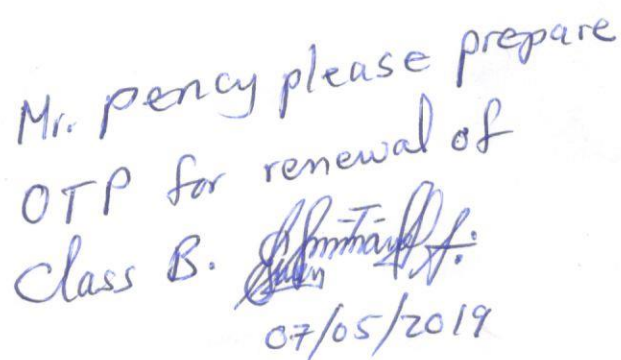 Mr. Pency please prepare
OTP for renewal of
Class B.
07/05/2019